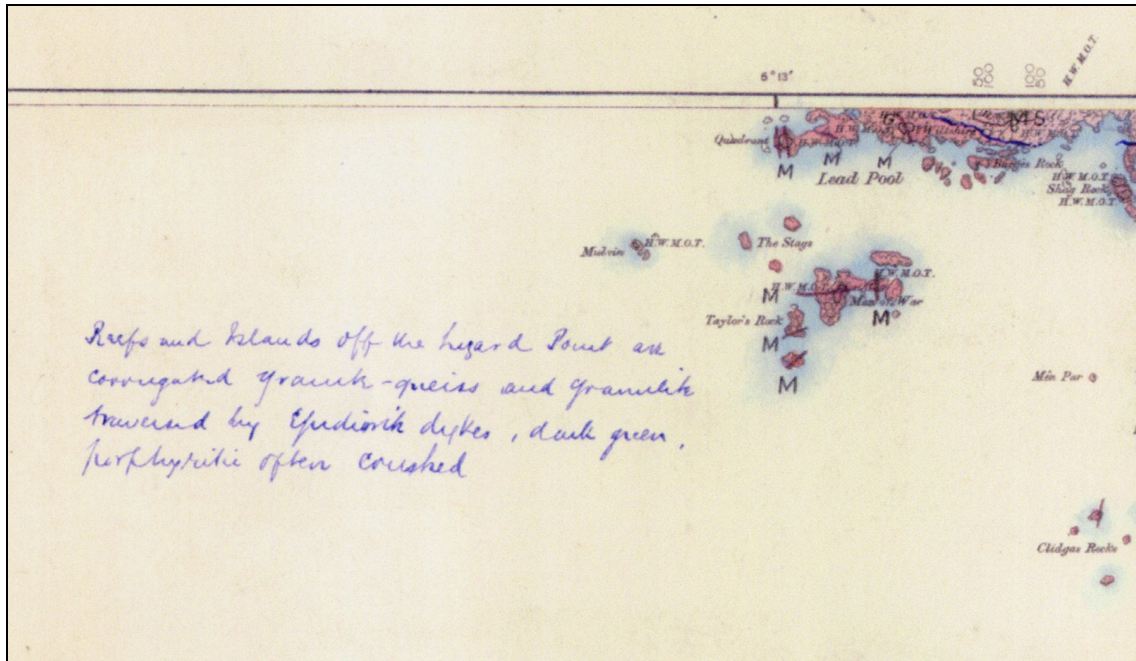 5° 13'
50
100
100
50
H.W.M.O.T.
M S
G
Quadrant
H.W.M.O.T.
H.W.M.O.T.
Wiltshire
H.W.M.O.T.
M
M
M
Lead Pool
Rock
H.W.M.O.T.
Shag Rock
H.W.M.O.T.
The Stags
Mulvin
H.W.M.O.T.
H.W.M.O.T.
M
H.W.M.O.T.
Man of War
Taylor's Rock
M
M
M
Mên Par
Clidgas Rocks
Reefs and Islands off the Lizard Point are
corrugated granite-gneiss and granulite
traversed by Epidiorite dykes, dark green,
porphyritic often crushed